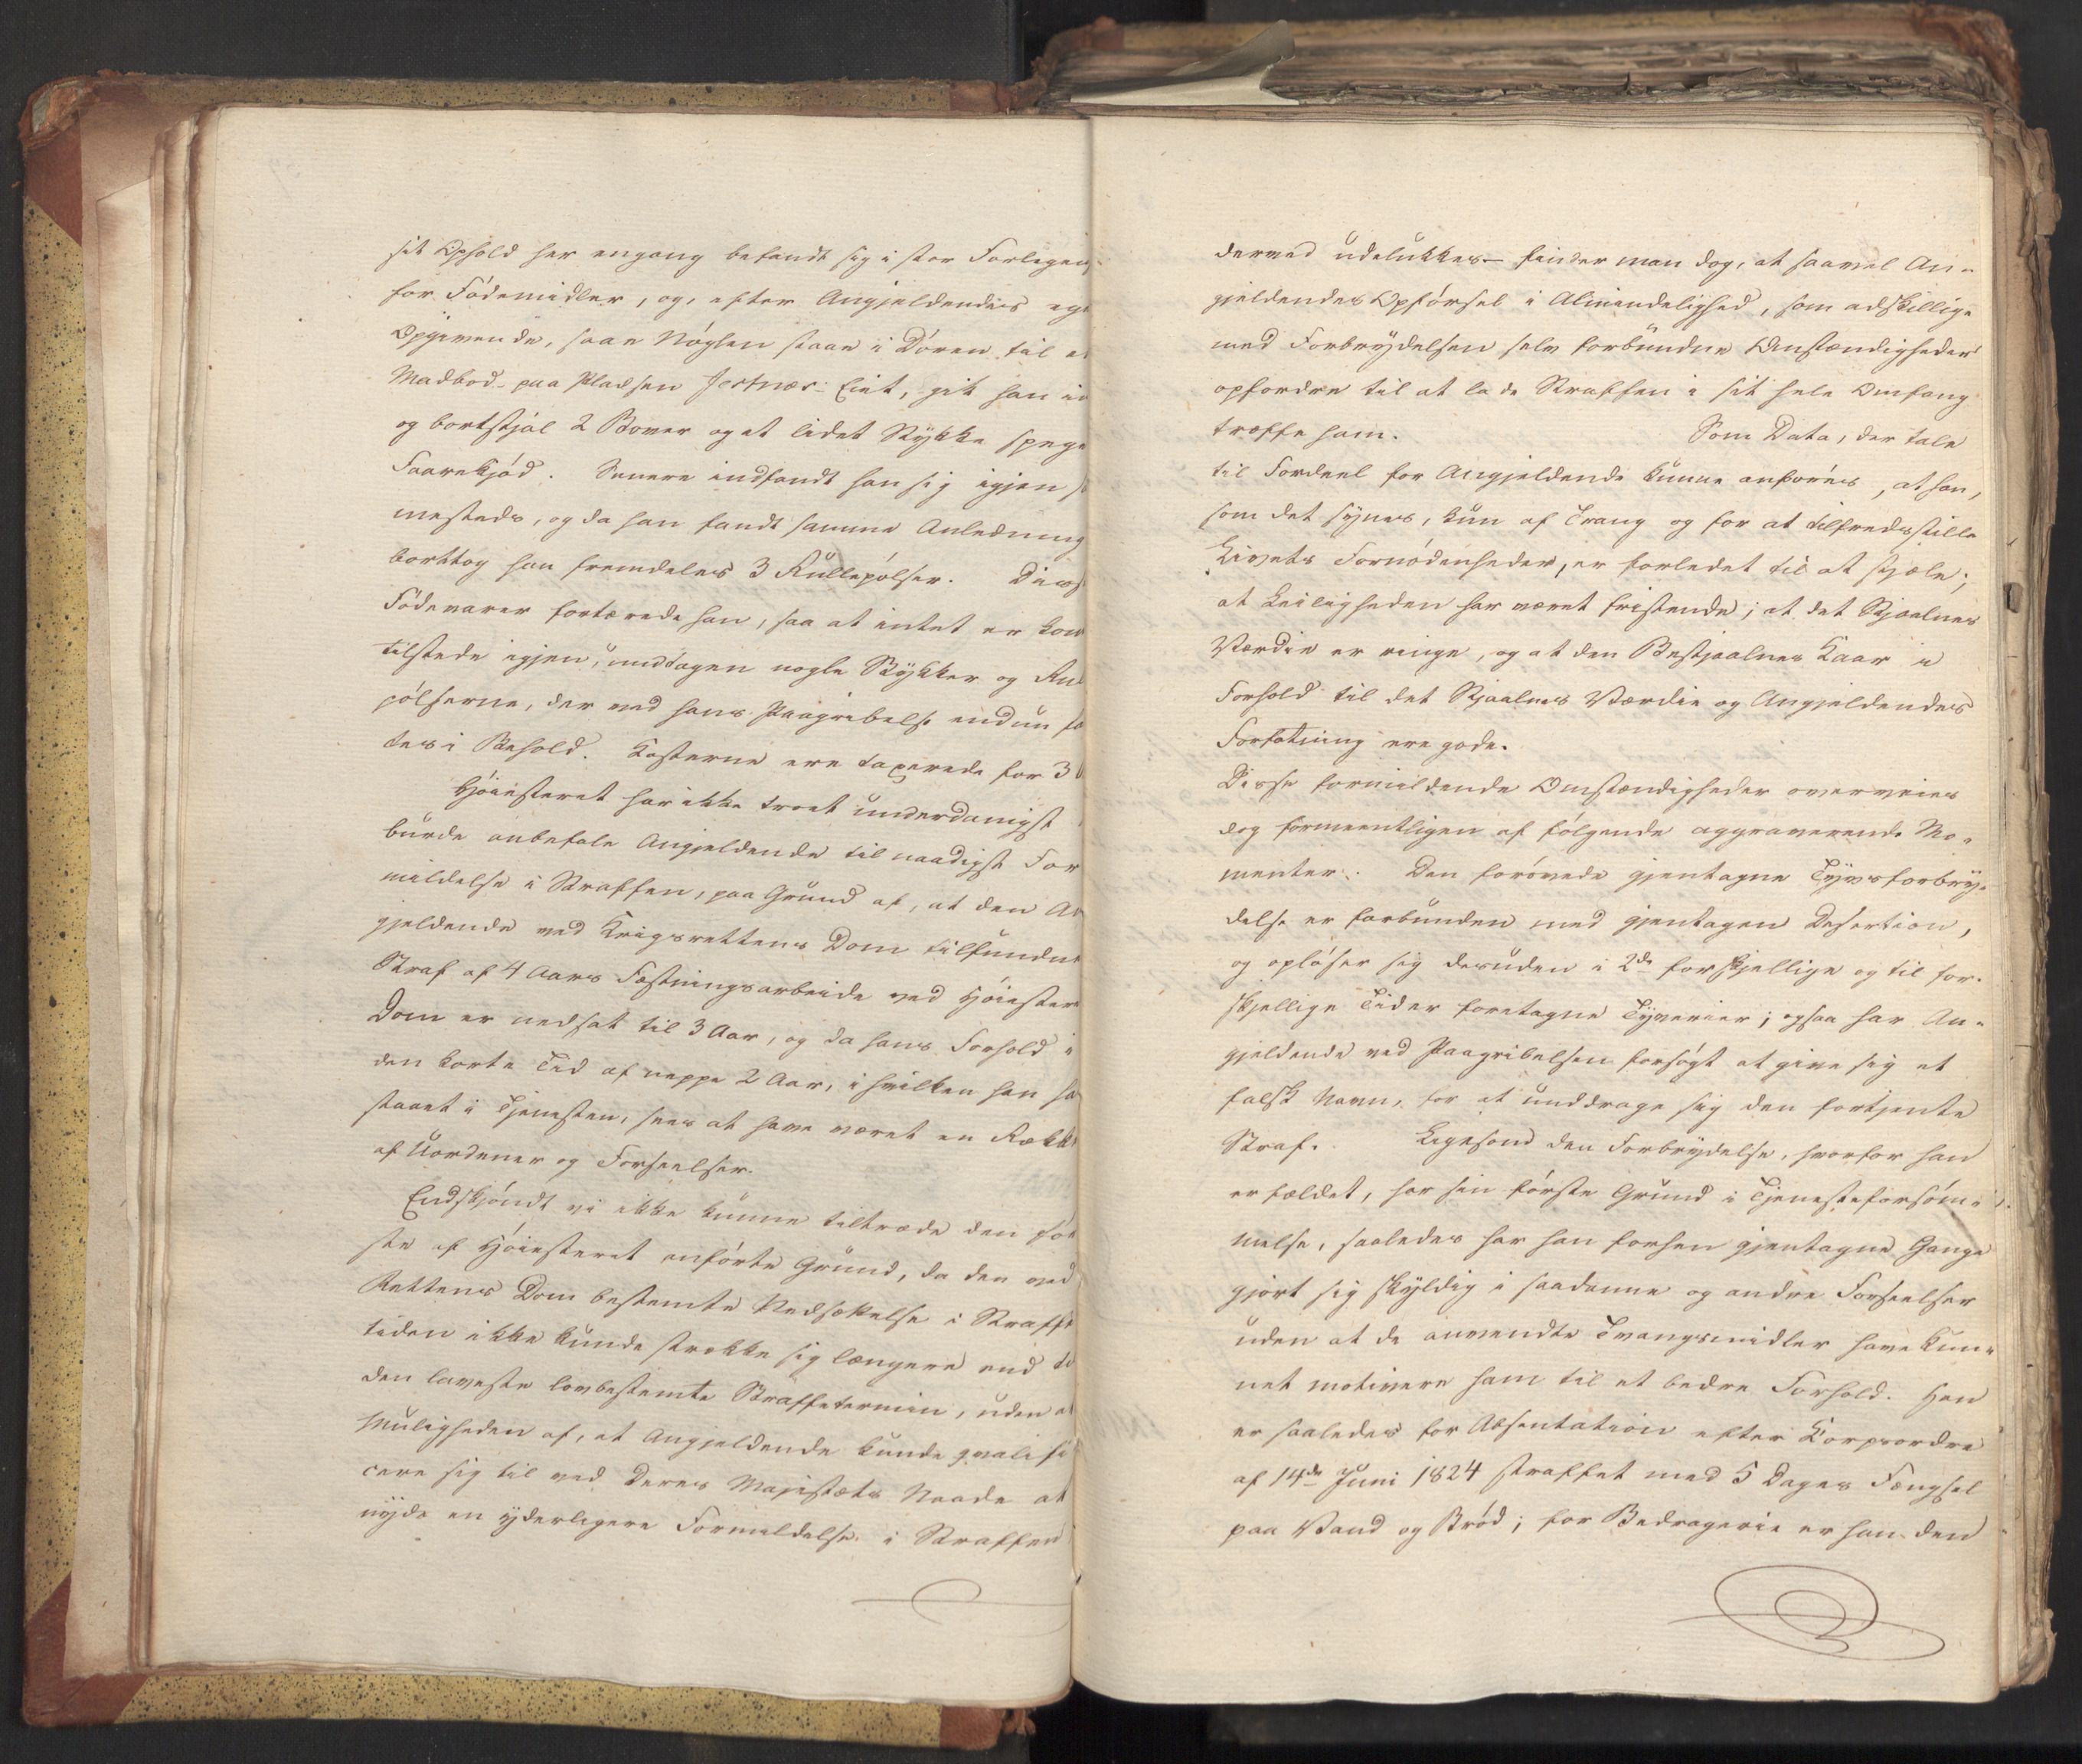 sit Ophold her engang befandt sig i stor Forlegen-
for Fødemidler, og, efter Angjeldendes eget
Opgivende, saae Nøglen staae i Døren til et
Madbod paa Pladsen Jestnæs-Eiet, gik han ind
og bortstjal 2 Bover og et lidet Stykke speget
Faarekjød. Senere indfandt han sig igjen s
mesteds, og da han fandt samme Anledning
borttog han fremdeles 3 Rullepølser. Disse
Fødevarer fortærede han, saa at intet er kom
tilstede igjen, undtagen nogle Stykker og Rul
pølserne, der ved hans Paagribelse endnu ha
tes i Behold. Kosterne ere taxerede for 3
Høiesteret har ikke troet underdanigst
burde anbefale Angjeldende til naadigst For
mildelse i Straffen, paa Grund af, at den An
gjeldende ved Krigsrettens Dom tilfundne
Straf af 4 Aars Fæstningsarbeide ved Høiestere
Dom er nedsatt til 3 Aar, og da hans Forhold i
den korte Tid af neppe 2 Aar, i hvilken han ha
staaet i Tjenesten, sees at have været en Række
af Uordener og Forseelser.
Endskjøndt vi ikke kunne tiltræde den før
ste af Høiesteret anførte Grund, da den ved
Rettens Dom bestemte Nedsættelse i Straffe
tiden ikke kunde strække sig længere end til
den laveste lovbestemte Straffetermin, uden at
Muligheden af, at Angjeldende kunde qvalifi
cere sig til ved Deres Majestæts Naade at
nyde en yderligere Formildelse i Straffen
derved udelukkes – finder man dog, at saavel An-
gjeldendes Opførsel i Almindelighed, som adskillige
med Forbrydelsen selv forbundne Omstændigheder
opfordre til at lade Straffen i sit hele Omfang
træffe ham. Som Data, der tale
til Fordeel for Angjeldende kunne anføres, at han,
som det synes, kun af Trang og for at tilfredsstille
Livets Fornødenheder, er forledet til at stjæle;
at Leiligheden har været fristende; at det Stjaalnes
Værdie er ringe, og at den Bestjaalnes Kaar i
Forhold til det Stjaalnes Værdie og Angjeldendes
Forfatning ere gode.
Disse formildende Omstændigheder overveies
dog formeentligen af følgende aggraverende Mo-
menter: Den forøvede gjentagne Tyvsforbry-
delse er forbunden med gjentagen Desertion,
og opløser sig desuden i 2de forskjellige og til for-
skjellige Tider foretagne Tyverier; ogsaa har An-
gjeldende ved Paagribelsen forsøgt at give sig et
falsk Navn, for at unddrage sig den fortjente
Straf. Ligesom den Forbrydelse, hvorfor han
er fældet, har sin første Grund i Tjenesteforsøm-
melse, saaledes har han forhen gjentagne Gange
gjort sig skyldig i saadanne og andre Forseelser
uden at de anvendte Tvangsmidler have kun-
net motivere ham til et bedre Forhold. Han
er saaledes for Absentation efter Korpsordre
af 14de Juni 1824 straffet med 5 Dages Fængsel
paa Vand og Brød; for Bedragerie er han den